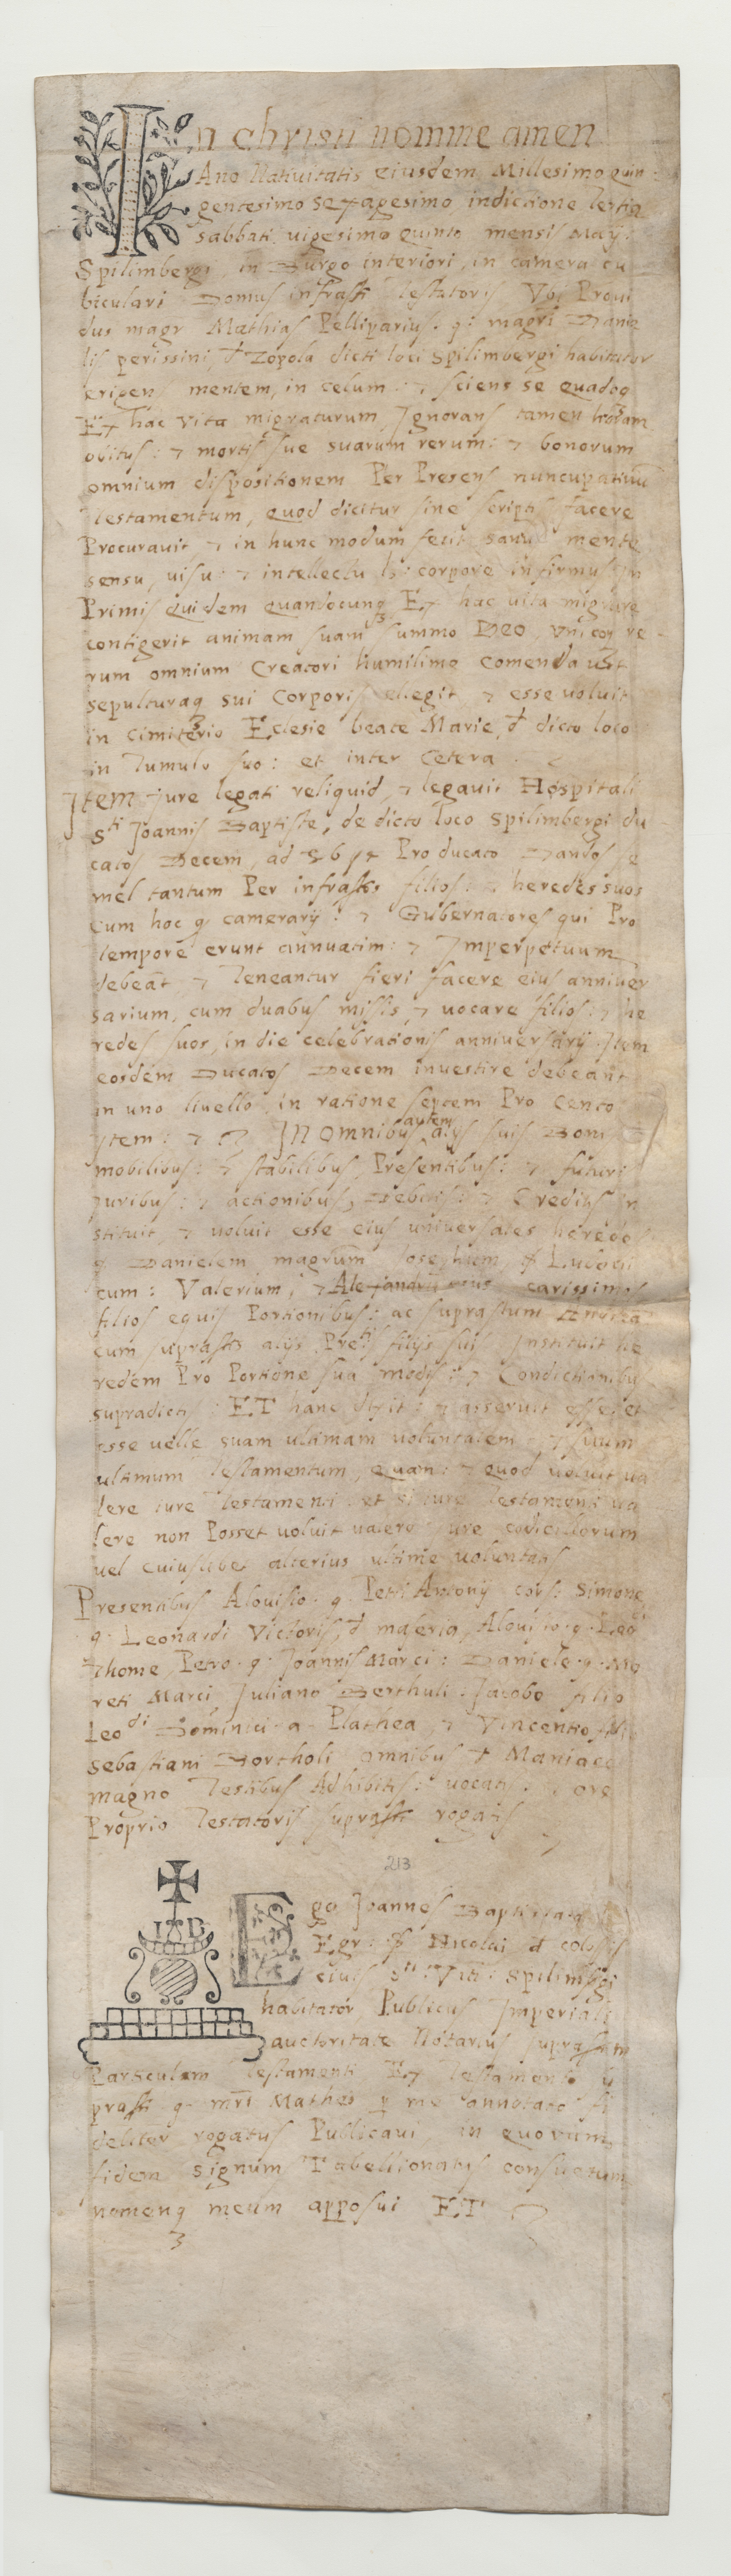 In christi nomine amen
Ano Nativitatis eiusdem Millesimo quin
gentesimo sexagesimo indictione Tertia
sabbati vigesimo quinto mensis Maij:
Spilimbergi, in Burgo interiori, in camera cu
biculari Domus infrasti Testatoris Vbi Provi
dus magr Mathias Pelliparius. q: magri Danie
lis perissini, d Zopola dicti loci Spilimbergi habitator
erigens mentem, in celum: ⁊ sciens se quadoq
Ex hac vita migraturum, Ignorans tamen horam
obitus: ⁊ mortis sue suarum rerum: ⁊ bonorum
omnium dispositionem Per Presens nuncupativū
Testamentum, quod dicitur sine scriptis facere
Procuravit, ⁊ in hunc modum fecit sanus mente
sensu, visu: ⁊ intellectu lz: corpore infirmus in
Primis quidem quandocunq Ex hac vita migrare
contigerit animam suam summo Deo, vnicoq re
rum omnium Creatori humilime comendavit
sepulturaq sui Corporis ellegit, ⁊ esse voluit
in Cimiterio Eclesie beate Marie, d dicto loco
in Tumulo suo: et inter Cetera
Item jure legati reliquid, ⁊ legavit Hospitali
Sti Joannis Baptiste, de dicto loco Spilimbergi du
catos Decem, ad Pro ducato Dandos se
mel tantum Per infrastos filios: ⁊ heredes suos
cum hoc q camerarij: ⁊ Gubernatores qui Pro
tempore erunt annuatim: ⁊ Imperpetuum
debeāt, ⁊ Teneantur fieri facere eius anniver
sarium, cum duabus missis, ⁊ vocare filios: ⁊ he
redes suos, in die celebrationis anniversarij. Item
eosdem Ducatos Decem investire debeant
in uno livello, in ratione septem Pro Cento
item: ⁊ In omnibus autem alijs suis Boni
mobilibus: ⁊ stabilibus, Presentibus: ⁊ futuris
juribus: ⁊ actionibus, Debitis: ⁊ Creditis in
stituit, ⁊ voluit esse eius universales heredes
Danielem magrum Josephum, Ludovi
cum: Valerium, ⁊ Alexandrum suos carissimos
filios equis Portionibus: ac suprastum
cum suprastis alijs Pretis filijs suis Instituit he
redem Pro Portione sua modis: ⁊ Condictionibus
supradictis: ET hanc dixit: ⁊ asseruit esse, et
esse velle suam ultimam voluntatem, ⁊ suum
ultimum Testamentum, quam: ⁊ quod voluit va
lere iure Testamenti: et si iure Testamenti va
lere non Posset voluit valere iure codicillorum
vel cuiuslibet alterius ultime voluntatis
Presentibus Aloisio. q. Petri Antonij Simone
q. Leonardi Victoris, d maleria, Aloisio. q. Leo
Thome, Petro. q. Joannis Marci: Daniele. q. Me
reti Marci, Juliano Berthuli. Jacobo filio
Leodi Dominici a Plathea, ⁊ Vincentio filio
Sebastiani Bortholi omnibus d Maniaco
magno Testibus Adhibitis: vocatis. ore
Proprio Testatoris suprasti rogatis
213
I A B
Ego Joannes Baptista
Egr: Nicolai d
civis Sti: Viti: Spilimbgi
habitator Publicus Imperiali
auctoritate Notarius suprastam
Particulam Testamenti Ex Testamento su
prasti q. mri Mathei p me annotato fi
deliter rogatus Publicavi, in quorum,
fidem Signum Tabellionatus consuetum
nomenq meum apposui ET